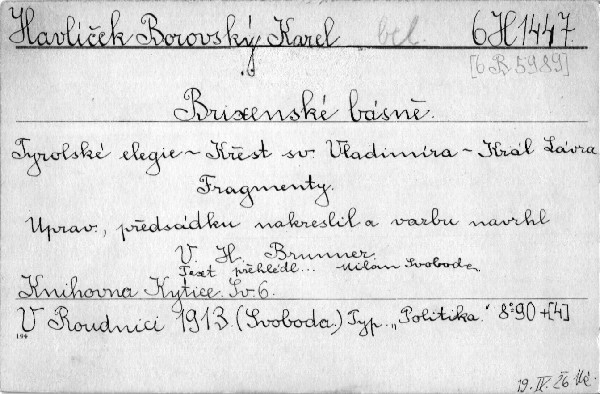 Havlíček Borovský Karel bel. 6H1447
[6B5989]
Brixenské básně.
Tyrolské elegie ~ Křest sv. Vladimíra ~ Král Lávra
Fragmenty.
Uprav., předsádku nakreslil a vazbu navrhl
V. H. Brunner.
Text přehlédl... Milan Svoboda
Knihovna Kytice. Sv. 6.
V Roudnici 1913. (Svoboda.) Typ. „Politika.“ 8° 90 + [4]
19. IV. 26